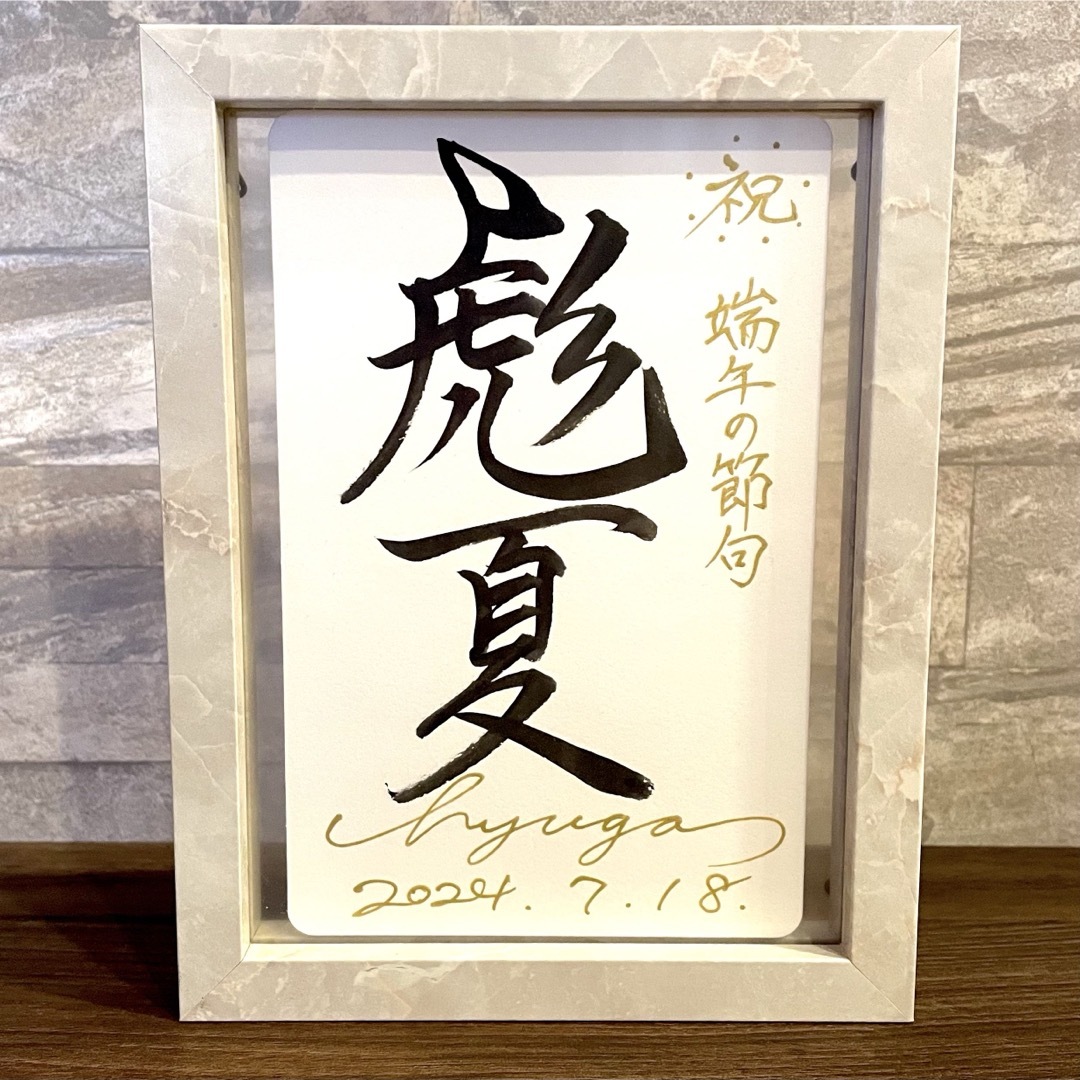 祝
端午の節句
彪夏
hyuga
2024.7.18.